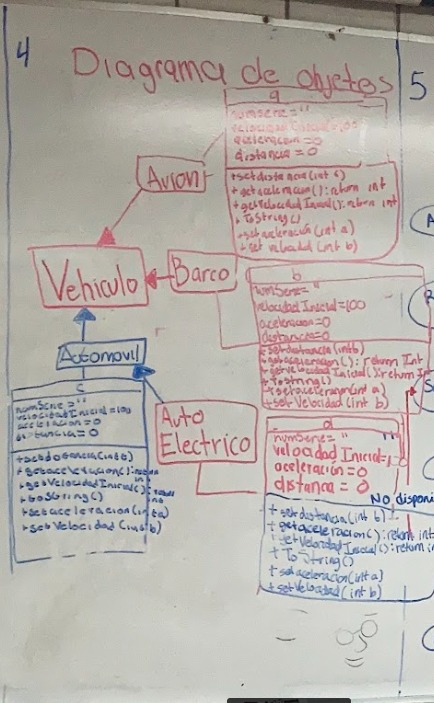 4
Diagrama de objetos
5
a
numSerie=""
velocidad Inicial=100
aceleracion=0
distancia=0
+setdistancia(int b)
+getaceleracion():return int
+getVelocidad Inicial():return int
+ToString()
+setaceleración(int a)
+set velocidad(int b)
Avion
Vehiculo
Barco
b
numSerie="
velocidad Inicial=100
aceleracion=0
distancia=0
+setdistancia(int b)
+getaceleracion():return Int
+getVelocidad Inicial():return I
+tostring()
+setaceleracion(int a)
+set Velocidad (int b)
Automovil
c
numSerie="
velocidad Inicial=100
aceleracion=0
distancia=0
+setdistancia(int b)
+getaceleracion():return
int
+getVelocidad Inicial():return
int
+toString()
+setaceleracion(int a)
+setVelocidad(int b)
Auto
Electrico
d
numSerie=" "
velocidad Inicial=
aceleración=0
distancia=0
No disponi
+setdistancia(int b)
+getaceleracion():return int
+getVelocidad Inicial():return in
+ToString()
+setaceleracion(int a)
+setVelocidad(int b)